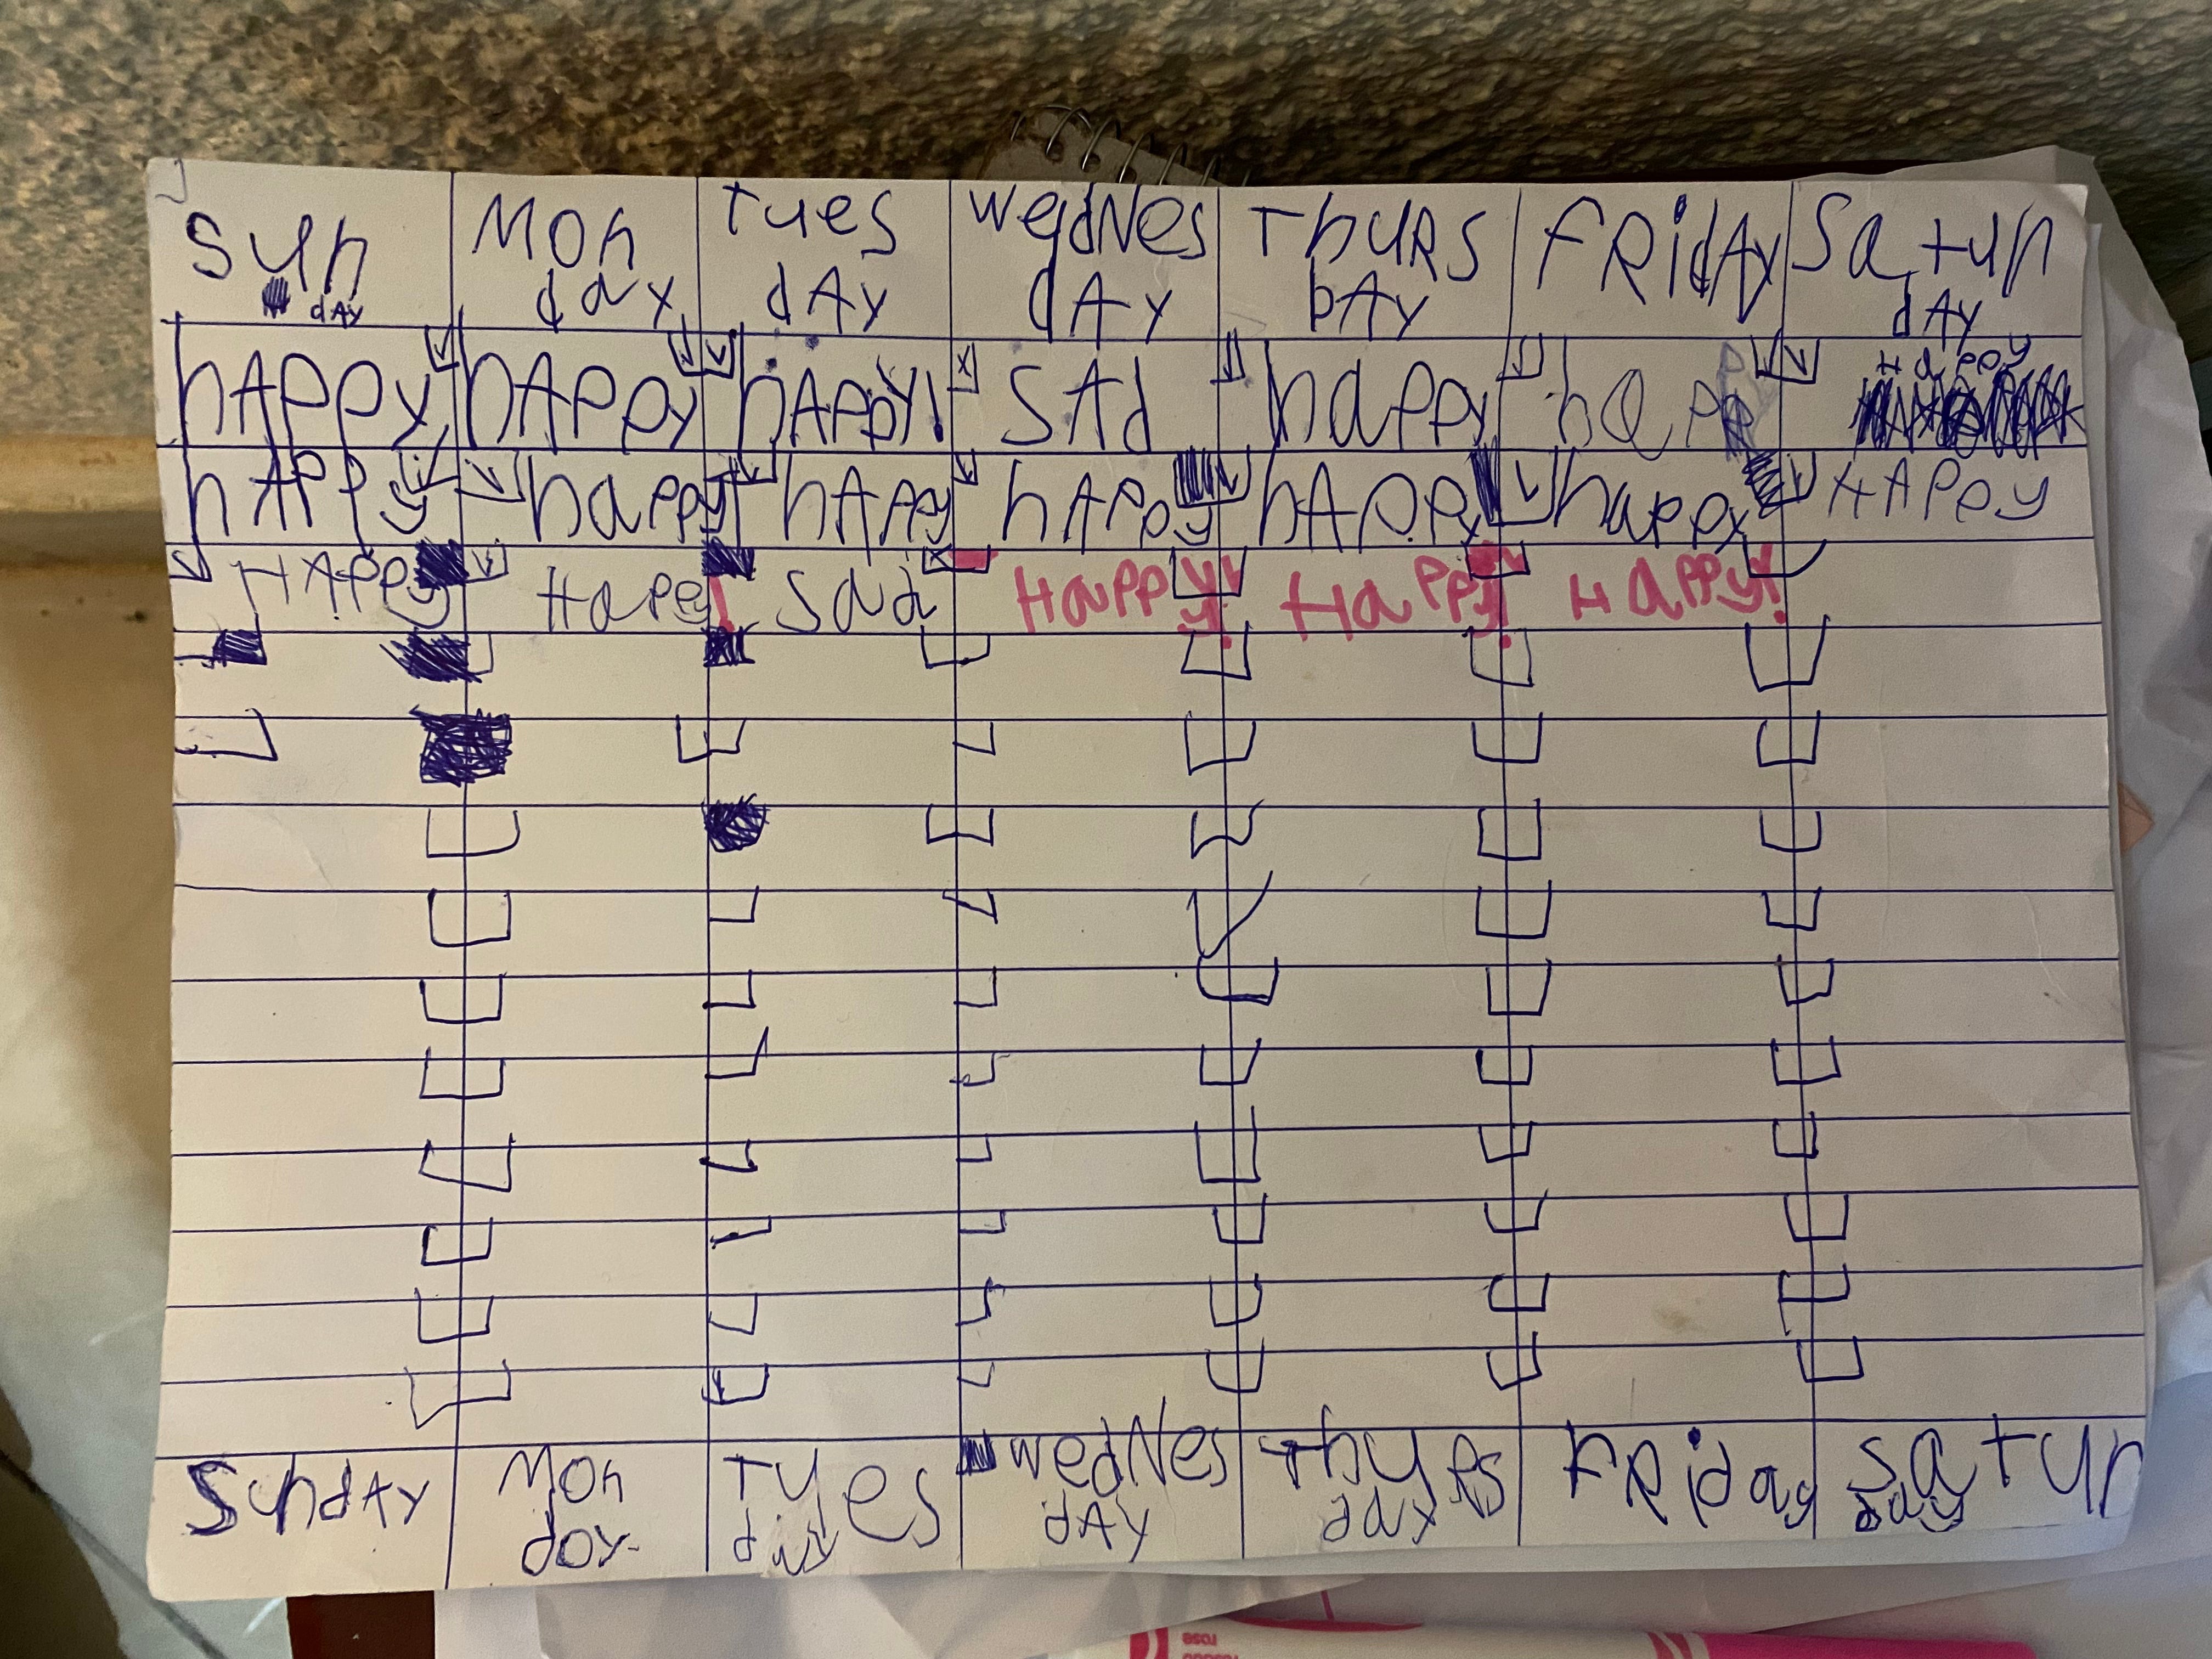 sun Mon Tues wedNes Thurs FRidAy Satur
dAy day dAy dAy bAy dAy
hAPPy hAPPy hAPPy! SAd happy happ Happy
hAPPy happy hAppy hAPPy hAPPy happy HAPPy
HAPPy Happy! Sad Happy! Happy! Happy!
SundAy Mon Tues wedNes Thurs FRiday satur
day day dAy day day
rose